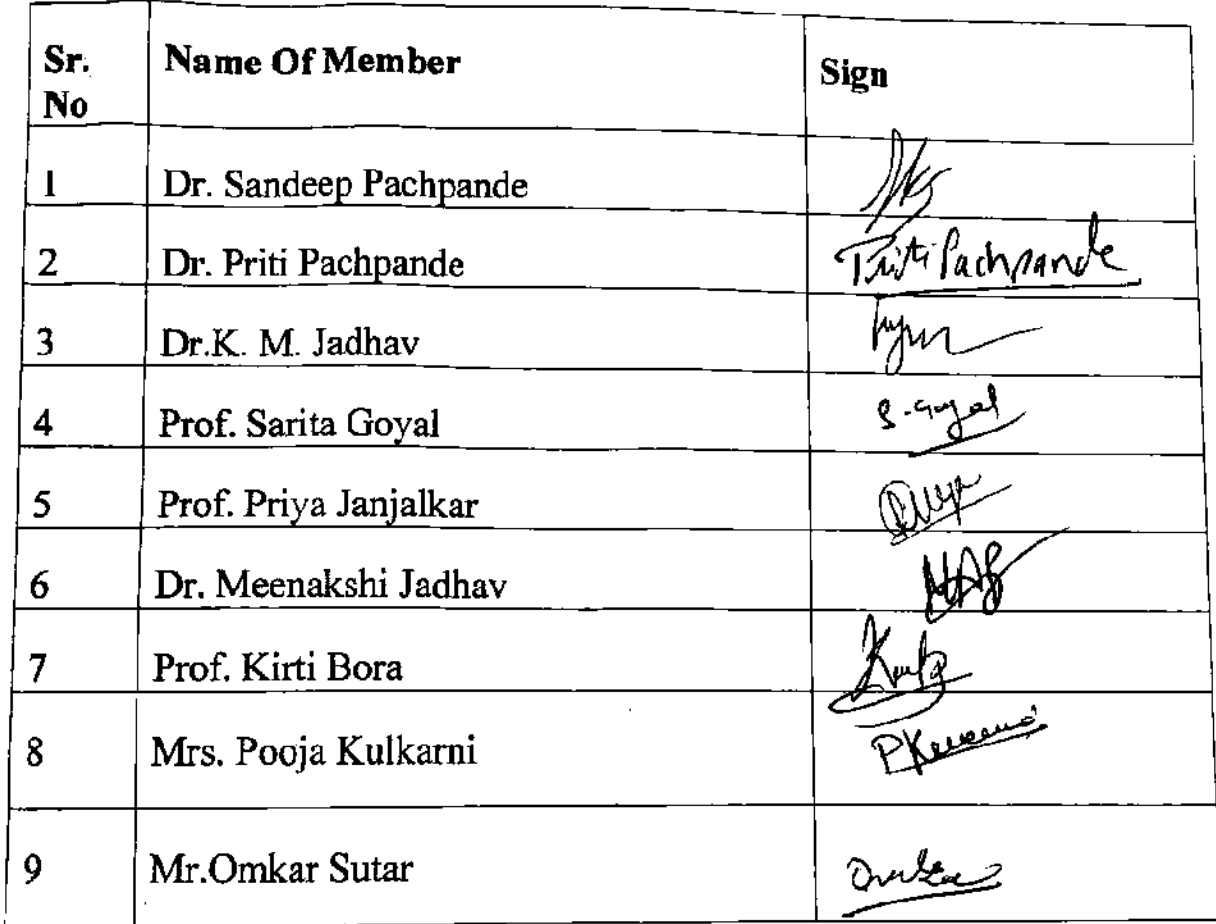 Sr. No Name Of Member Sign
1 Dr. Sandeep Pachpande
2 Dr. Priti Pachpande Priti Pachpande
3 Dr.K. M. Jadhav
4 Prof. Sarita Goyal S. Goyal
5 Prof. Priya Janjalkar
6 Dr. Meenakshi Jadhav
7 Prof. Kirti Bora
8 Mrs. Pooja Kulkarni
9 Mr.Omkar Sutar